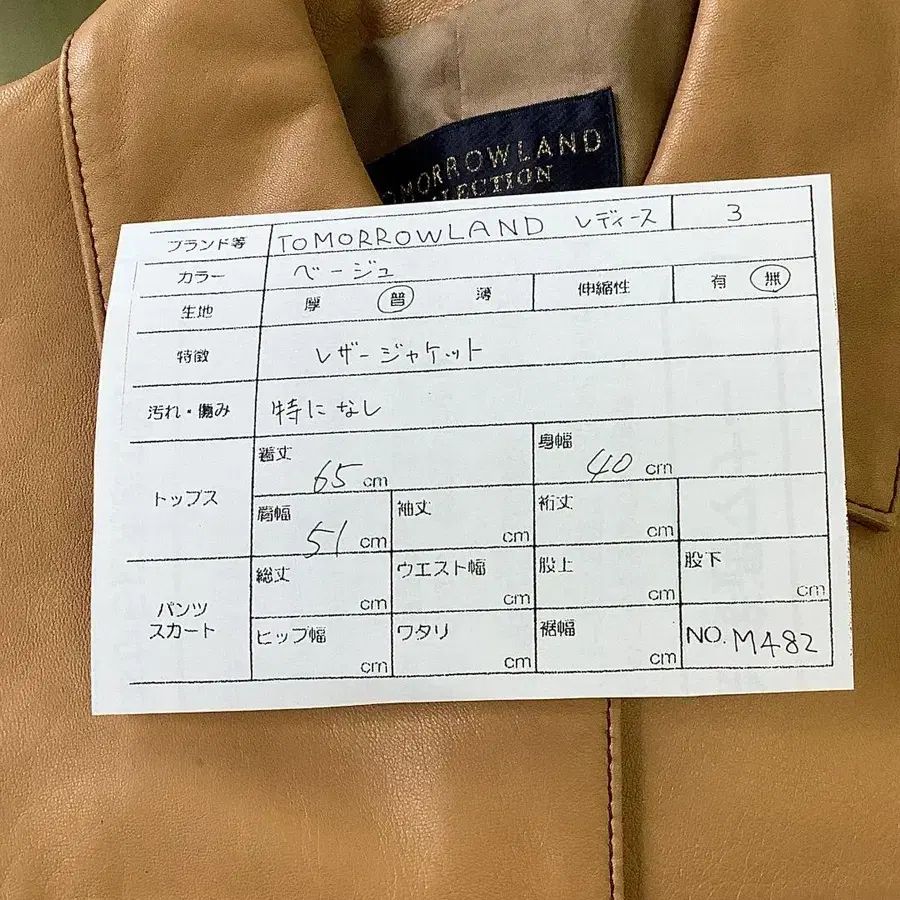 TOMORROWLAND
COLLECTION
ブランド等 TOMORROWLAND レディース 3
カラー ベージュ
生地 厚 普 薄 伸縮性 有 無
特徴 レザージャケット
汚れ・傷み 特になし
トップス
着丈 65 cm 身幅 40 cm
肩幅 51 cm 袖丈 cm 裄丈 cm
パンツ
スカート
総丈 cm ウエスト幅 cm 股上 cm 股下 cm
ヒップ幅 cm ワタリ cm 裾幅 cm NO. M482